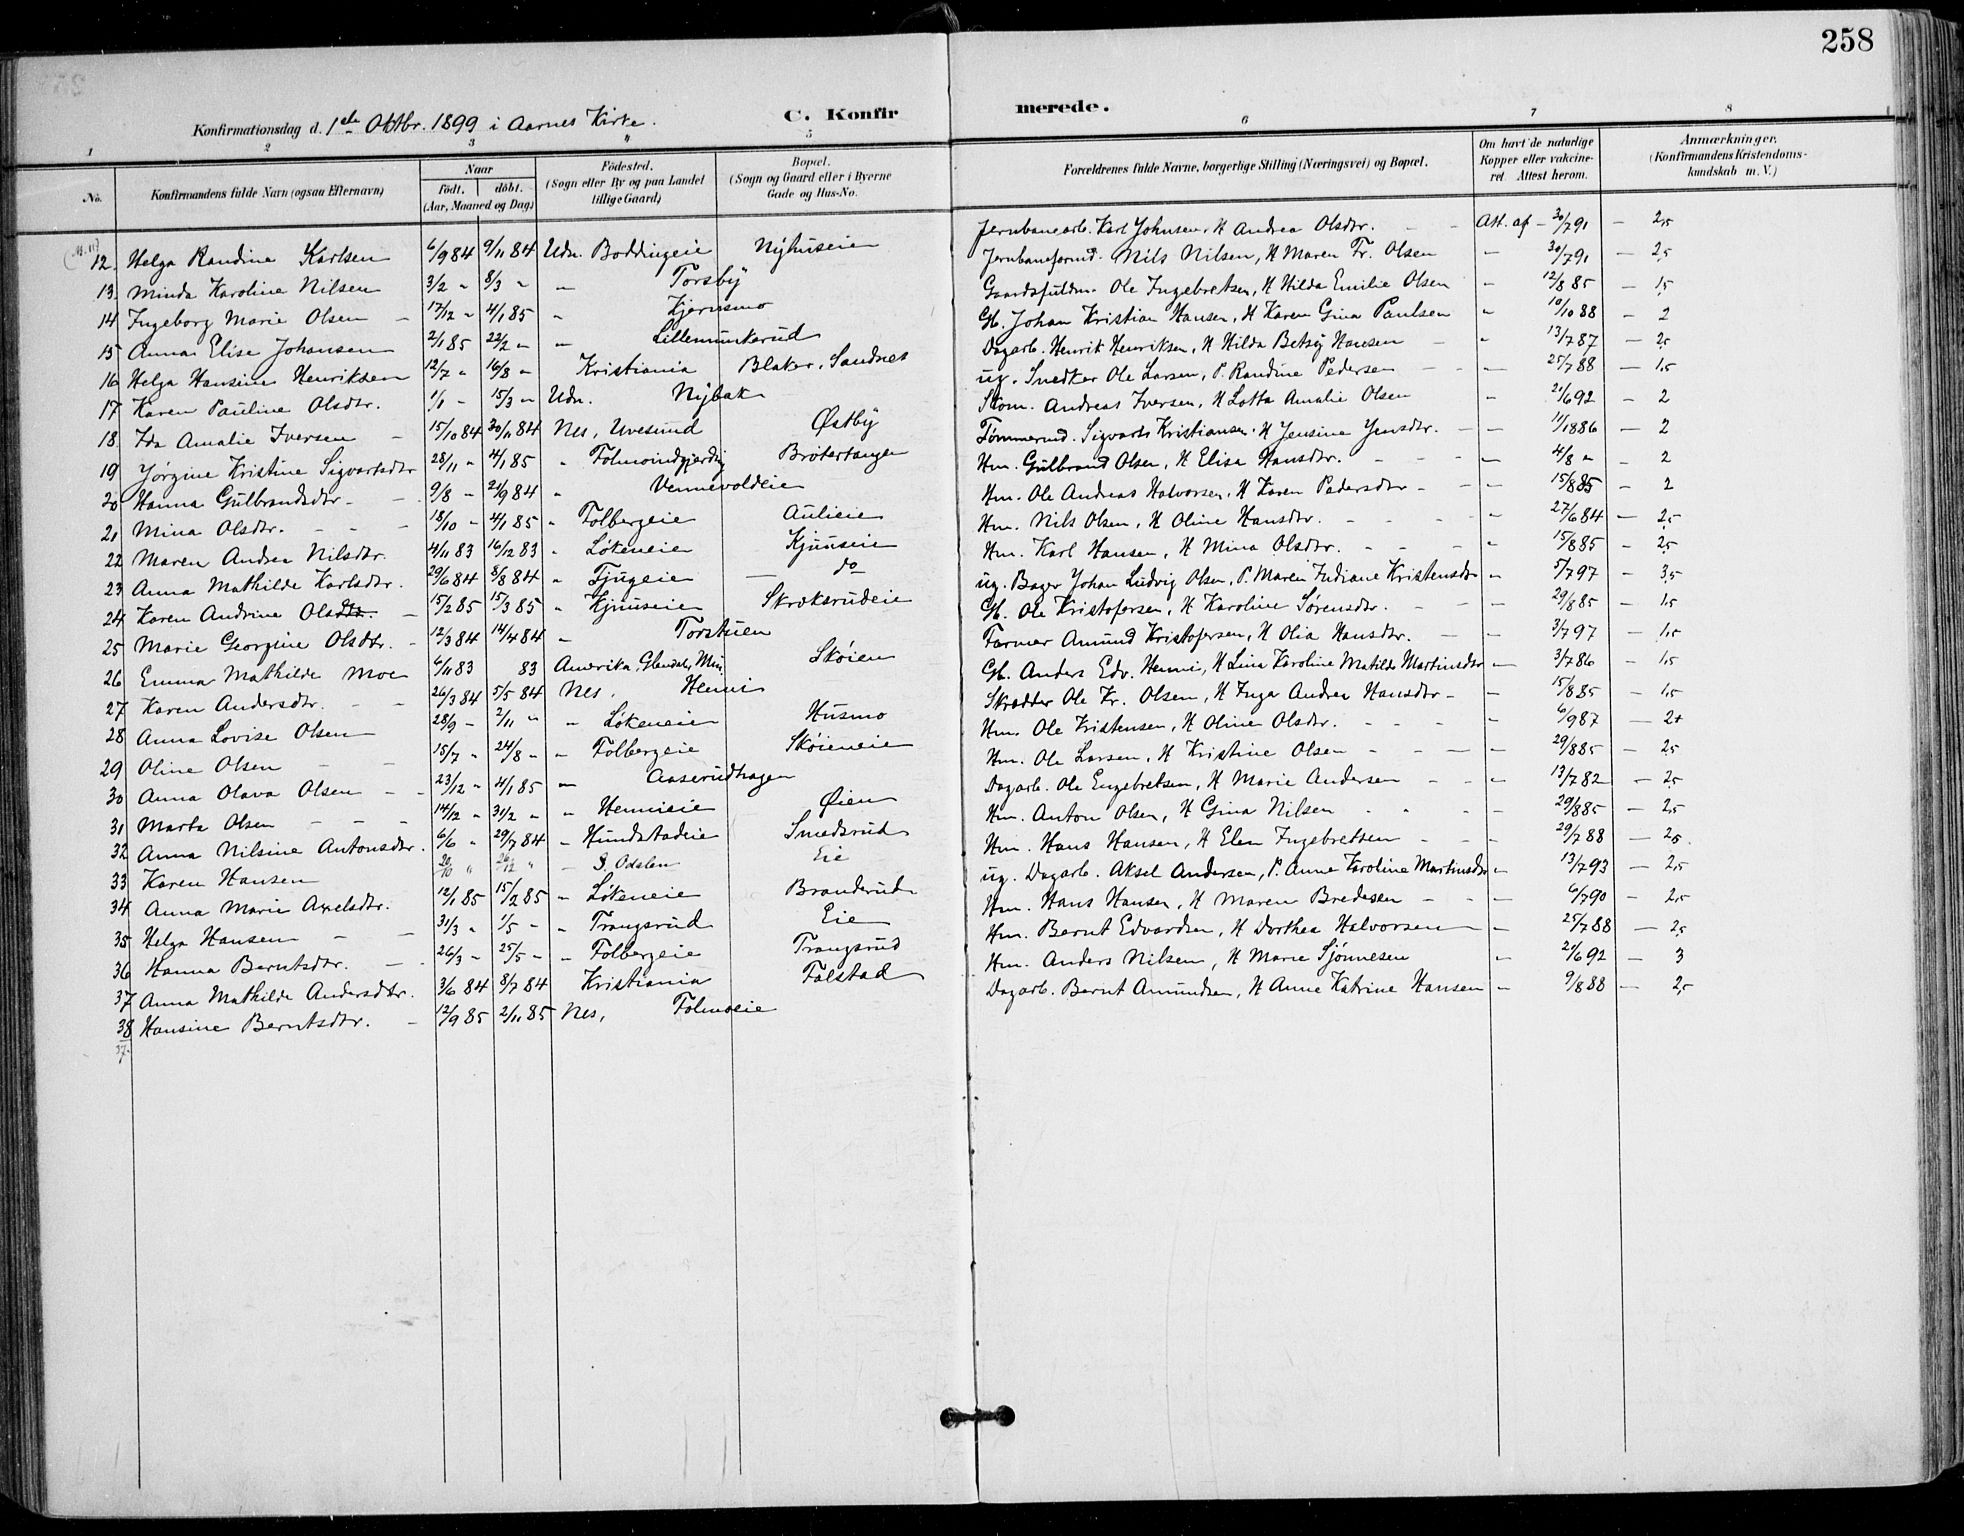 258
Konfirmationsdag d. 1ste Oktbr. 1899 i Aarnes Kirke.
C. Konfirmerede.
1 2 3 4 5 6 7 8
No.
Konfirmandens fulde Navn (ogsaa Efternavn)
Naar
Födt. döbt.
(Aar, Maaned og Dag)
Födested.
(Sogn eller By og paa Landet
tillige Gaard)
Bopæl.
(Sogn og Gaard eller i Byerne
Gade og Hus-No.
Forældrenes fulde Navne, borgerlige Stilling (Næringsvei) og Bopæl.
Om havt de naturlige
Kopper eller vakcine-
ret. Attest herom.
Anmærkninger.
(Konfirmandens Kristendoms-
kundskab m. V.)
12. Helga Randine Karlsen 6/9 84 9/11 84 Udn. Boddingeie Nyhuseie Jernbanearb. Karl Johnsen, H Andrea Olsdtr. Att. af - 30/7 91 - 2,5
13. Minda Karoline Nilsen 3/2 " 8/3 " " Torsby Jernbaneformd. Nils Nilsen, H Maren Fr. Olsen " 30/7 91 - 2,5
14 Ingeborg Marie Olsen - 17/12 " 4/1 85 " Kjernsmo Gaardsfuldm. Ole Ingebretsen, H Hilda Emilie Olsen " 12/8 85 - 1,5
15 Anna Elise Johansen 2/1 85 22/2 " " Lillemunkerud Gb. Johan Kristian Hansen, H Karen Gina Paulsen " 10/10 88 - 2
16 Helga Hansine Henriksen 12/7 " 16/8 " Kristiania Blaker, Sandnes Dagarb. Henrik Henriksen, H Hilda Betsy Hansen - " 13/7 87 - 2,5
17 Karen Pauline Olsdtr. 1/1 - 15/3 " Udn. Nybak ug. Snedker Ole Larsen, P. Randine Pedersen - - 25/7 88 - 1,5
18 Ida Amalie Iversen - 15/10 84 30/11 84 Nes, Uvesund Østby Skom. Andreas Iversen, H Lotta Amalie Olsen " 21/6 92 - 2
19 Jørgine Kristine Sigvartsdtr 28/11 " 4/1 85 " Brøtertangen Tømmermd. Sigvarts Kristiansen, H Jensine Jensdtr. - - 11/1886 - 2
20 Hanna Gulbrandsdtr - - 9/8 - 21/9 84 " Vennevoldeie Hm. Gulbrand Olsen, H Elisa Hansdtr. - - - 4/8 " - 2
21 Mina Olsdtr. - - - 18/10 - 4/1 85 " Folbergeie Aulieie Hm. Ole Andreas Halvorsen, H Karen Pedersdtr - - - 15/8 85 - 2
22 Maren Andrea Nilsdtr. 4/11 83 16/12 83 " Løkeneie Kjuuseie Hm. Nils Olsen, H Oline Hansdtr. - - - " 27/6 84 - 2,5
23 Anna Mathilde Karlsdtr. 29/6 84 8/8 84 " Tjugeie - do Hm. Karl Hansen, H Mina Olsdtr. - - - " 15/8 85 - 2,5
24 Karen Andrine Olsdtr. - 15/2 85 15/3 85 " Kjuuseie Skøksrudeie ug. Bager Johan Ludvig Olsen, P. Maren Indiane Kristensdtr " 5/7 97 - 3,5
25 Marie Georgine Olsdtr. - 12/3 84 14/4 84 " Torstuen Gb. Ole Kristofersen, H Karoline Sørensdtr. - - - 29/8 85 - 1,5
26 Emma Mathilde Moe 6/11 83 83 Amerika, Glendale, Min. Skøien Farmer Amund Kristofersen, H Olia Hansdtr. - - 3/7 97 - 1,5
27 Karen Andersdtr. - - 26/3 84 5/5 84 Nes, Henni Gb. Anders Edv. Henni, H Lina Karoline Matilde Martinsdtr - 3/7 86 - 1,5
28 Anna Lovise Olsen 28/9 - 2/11 " " Løkeneie Husmo Skrædder Ole Kr. Olsen, H Inga Andrea Hansdtr - - 15/8 85 - 1,5
29 Oline Olsen - - 15/7 " 24/8 - " Folbergeie Skøieneie Hm. Ole Kristensen, H Oline Olsdtr. - - - " 6/9 87 - 2+
30 Anna Olava Olsen - - 23/12 " 4/1 85 " Aaserudhagen Hm. Ole Larsen, H Kristine Olsen - - - - 29/8 85 - 2,5
31 Marta Olsen - - - 14/12 " 31/2 " " Hennieie Øien Dagarb. Ole Engebretsen, H Marie Andersen - - - 13/7 82 - 2,5
32 Anna Nilsine Antonsdtr. 6/6 " 29/7 84 - Hundstadeie Smedsrud Hm. Anton Olsen, H Gina Nilsen - - - 29/8 85 - 2,5
33 Karen Hansen 20/10 " 26/12 " - S. Odalen Eie Hm. Hans Hansen, H Elen Ingebretsen - - - 29/7 88 - 2,5
34 Anna Marie Axelsdtr. 12/1 85 15/2 85 - Løkeneie Branderud ug. Dagarb. Aksel Andersen, P. Anne Karoline Martinsdtr - 13/7 93 - 2,5
35 Helga Hansen - - 31/3 " 1/5 " " Trangsrud Eie Hm. Hans Hansen, H Maren Bredesen - - - 6/7 90 - 2,5
36 Hanna Berntsdtr. - - 26/3 - 25/5 - " Folbergeie Trangsrud Hm. Bernt Edvardsen, H Dorthea Halvorsen - 25/7 88 - 2,5
37 Anna Mathilde Andersdtr. 3/6 84 8/7 84 Kristiania Falstad Hm. Anders Nilsen, H Marie Sjønnesen " 21/6 92 - 3
38 Hansine Berntsdtr. - 12/9 85 2/11 85 Nes, Folmoeie Dagarb. Bernt Amundsen, H Anne Katrine Hansen - 9/8 88 - 2,5
37